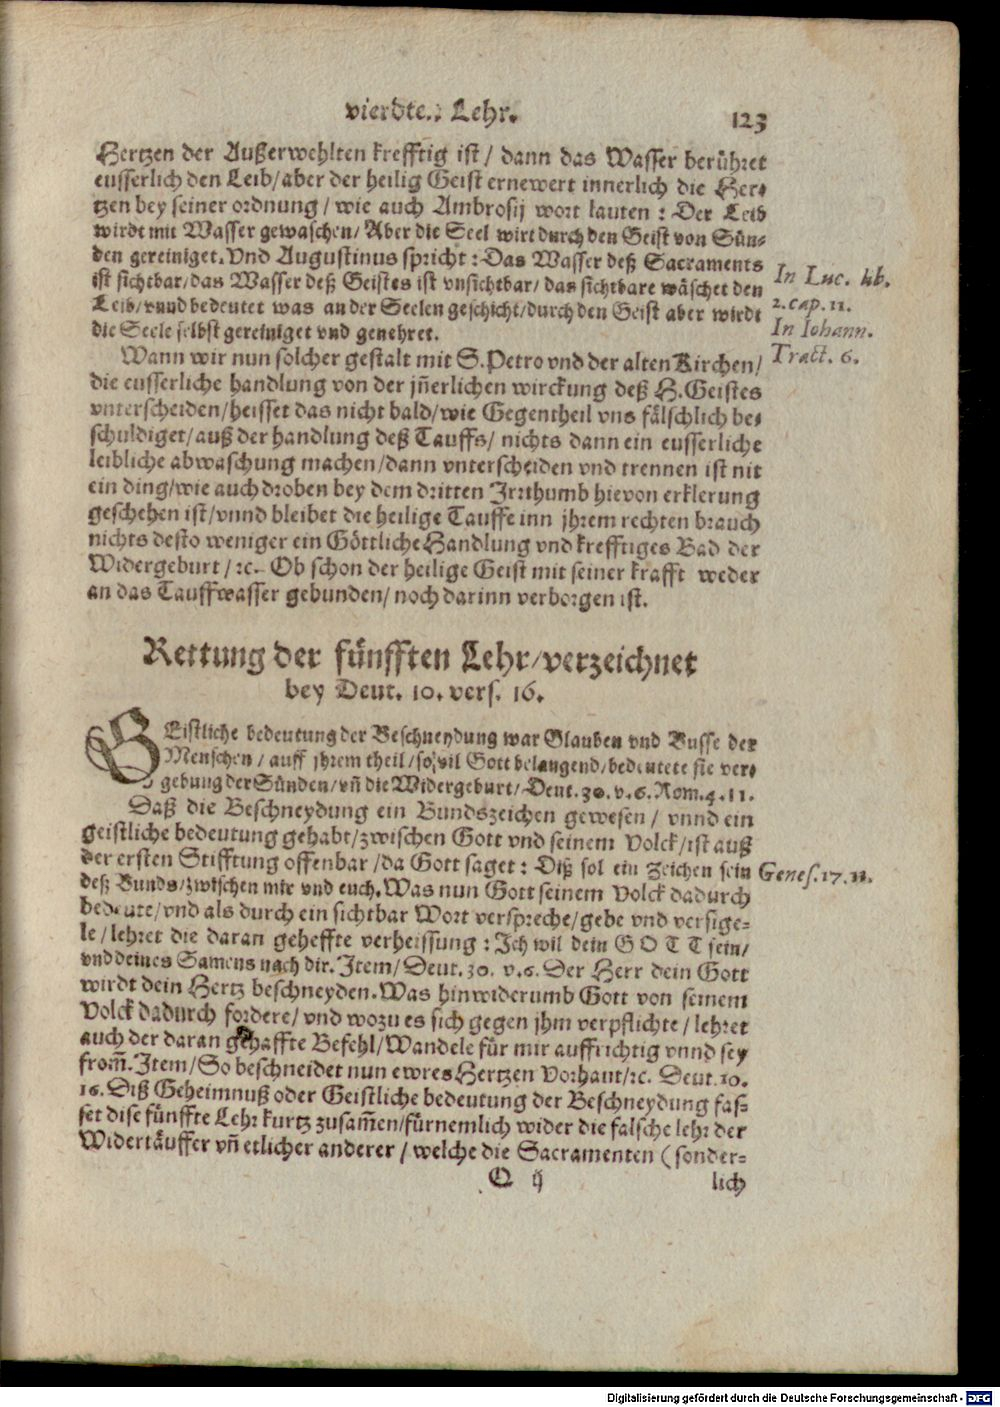 vierdte. Lehr.
123
Hertzen der Außerwehlten krefftig ist / dann das Wasser berühret
eusserlich den Leib / aber der heilig Geist ernewert innerlich die Her-
tzen bey seiner ordnung / wie auch Ambrosij wort lauten : Der Leib
wirdt mit Wasser gewaschen / Aber die Seel wirt durch den Geist von Sün-
den gereiniget. Vnd Augustinus spricht : Das Wasser deß Sacraments
ist sichtbar / das Wasser deß Geistes ist vnsichtbar / das sichtbare wäschet den
Leib / vnnd bedeutet was an der Seelen geschicht / durch den Geist aber wirdt
die Seele selbst gereiniget vnd genehret.
In Luc. lib.
2. cap. 11.
In Iohann.
Tract. 6.
Wann wir nun solcher gestalt mit S. Petro vnd der alten Kirchen /
die eusserliche handlung von der jñerlichen wirckung deß H. Geistes
vnterscheiden / heisset das nicht bald / wie Gegentheil vns fälschlich be-
schuldiget / auß der handlung deß Tauffs / nichts dann ein eusserliche
leibliche abwaschung machen / dann vnterscheiden vnd trennen ist nit
ein ding / wie auch droben bey dem dritten Irrthumb hievon erklerung
geschehen ist / vnnd bleibet die heilige Tauffe inn jhrem rechten brauch
nichts desto weniger ein Göttliche Handlung vnd krefftiges Bad der
Widergeburt / ꝛc. Ob schon der heilige Geist mit seiner krafft weder
an das Tauffwasser gebunden / noch darinn verborgen ist.
Rettung der fünfften Lehr / verzeichnet
bey Deut. 10. vers. 16.
GEistliche bedeutung der Beschneydung war Glauben vnd Busse der
Menschen / auff jhrem theil / so vil Gott belangend / bedeutete sie ver-
gebung der Sünden / vñ die Widergeburt / Deut. 30. v. 6. Rom. 4. 11.
Daß die Beschneydung ein Bundszeichen gewesen / vnnd ein
geistliche bedeutung gehabt / zwischen Gott vnd seinem Volck / ist auß
der ersten Stifftung offenbar / da Gott saget : Diß sol ein Zeichen sein
Genes. 17. 11.
deß Bunds / zwischen mir vnd euch. Was nun Gott seinem Volck dadurch
bedeute / vnd als durch ein sichtbar Wort verspreche / gebe vnd versige-
le / lehret die daran geheffte verheissung : Ich wil dein GOTT sein /
vnd deines Samens nach dir. Item / Deut. 30. v. 6. Der Herr dein Gott
wirdt dein Hertz beschneyden. Was hinwiderumb Gott von seinem
Volck dadurch fordere / vnd wozu es sich gegen jhm verpflichte / lehret
auch der daran gehaffte Befehl / Wandele für mir auffrichtig vnnd sey
from̃. Item / So beschneidet nun ewres Hertzen Vorhaut / ꝛc. Deut. 10.
16. Diß Geheimnuß oder Geistliche bedeutung der Beschneydung fas-
set dise fünffte Lehr kurtz zusam̃en / fürnemlich wider die falsche lehr der
Widertäuffer vñ etlicher anderer / welche die Sacramenten ( sonder-
Q ij
lich
Digitalisierung gefördert durch die Deutsche Forschungsgemeinschaft - DFG